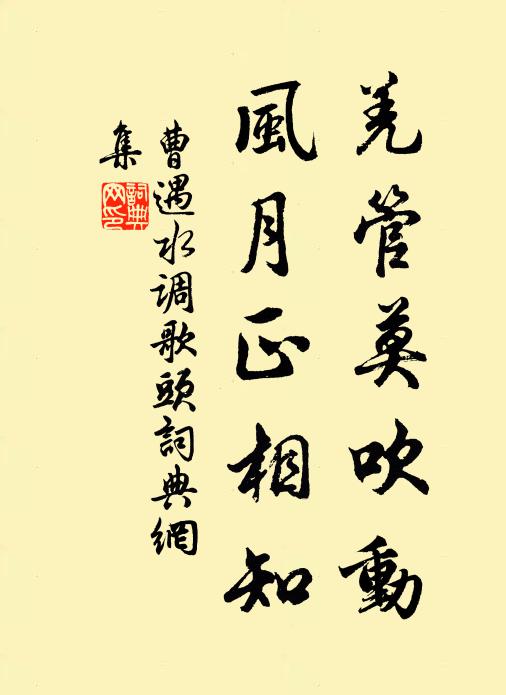 羌管莫吹動
風月正相知
曹遇水调歌頭詞典網
集
詞典网印